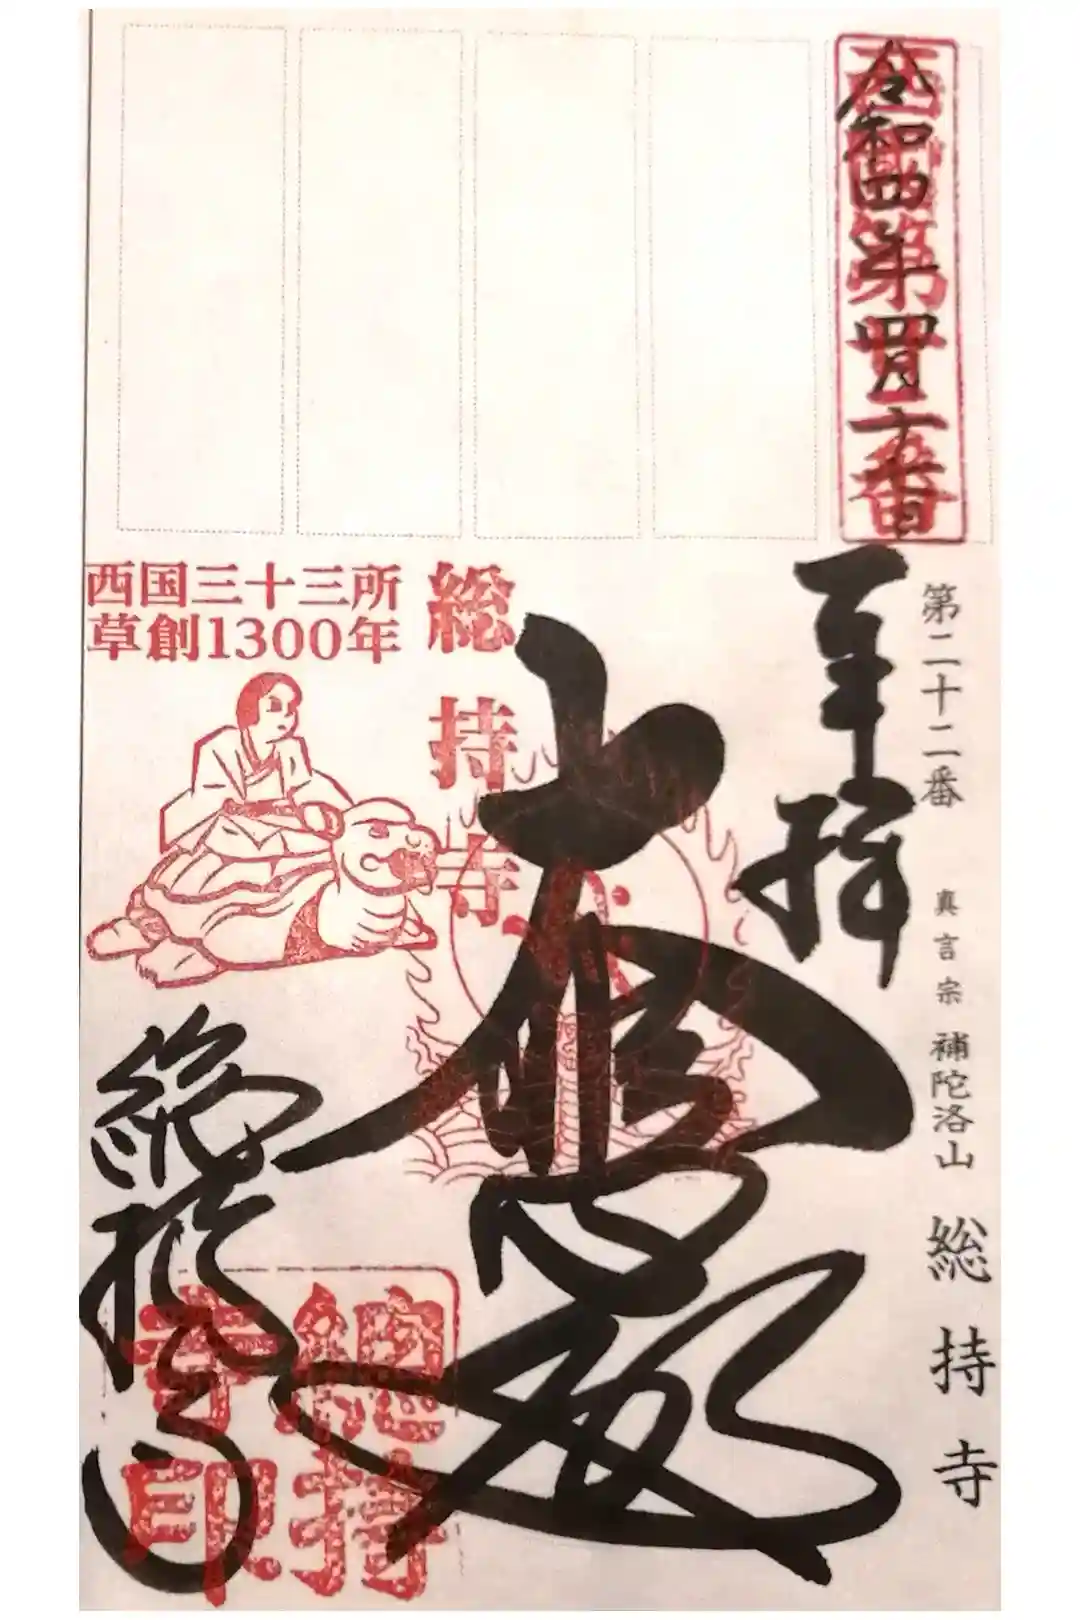 令和四年四月十日
奉拝
第二十二番 真言宗 補陀洛山 総持寺
大悲殿
総持寺
総持寺
西国三十三所
草創1300年
總持寺印